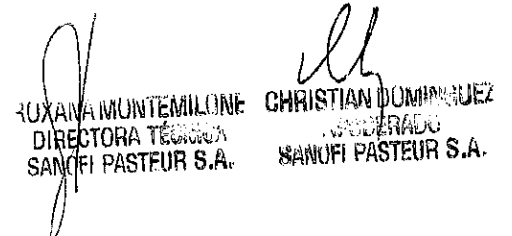 ROXANA MONTEMILONE
DIRECTORA TÉCNICA
SANOFI PASTEUR S.A.
CHRISTIAN DOMINGUEZ
APODERADO
SANOFI PASTEUR S.A.